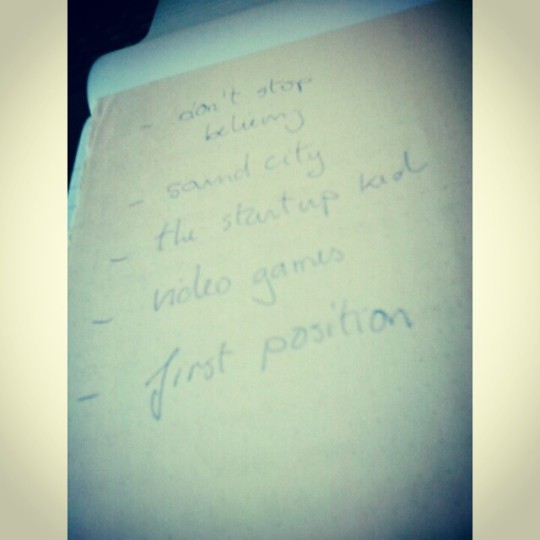 - don't stop
believing
- sound city
- the startup kid
- video games
- first position